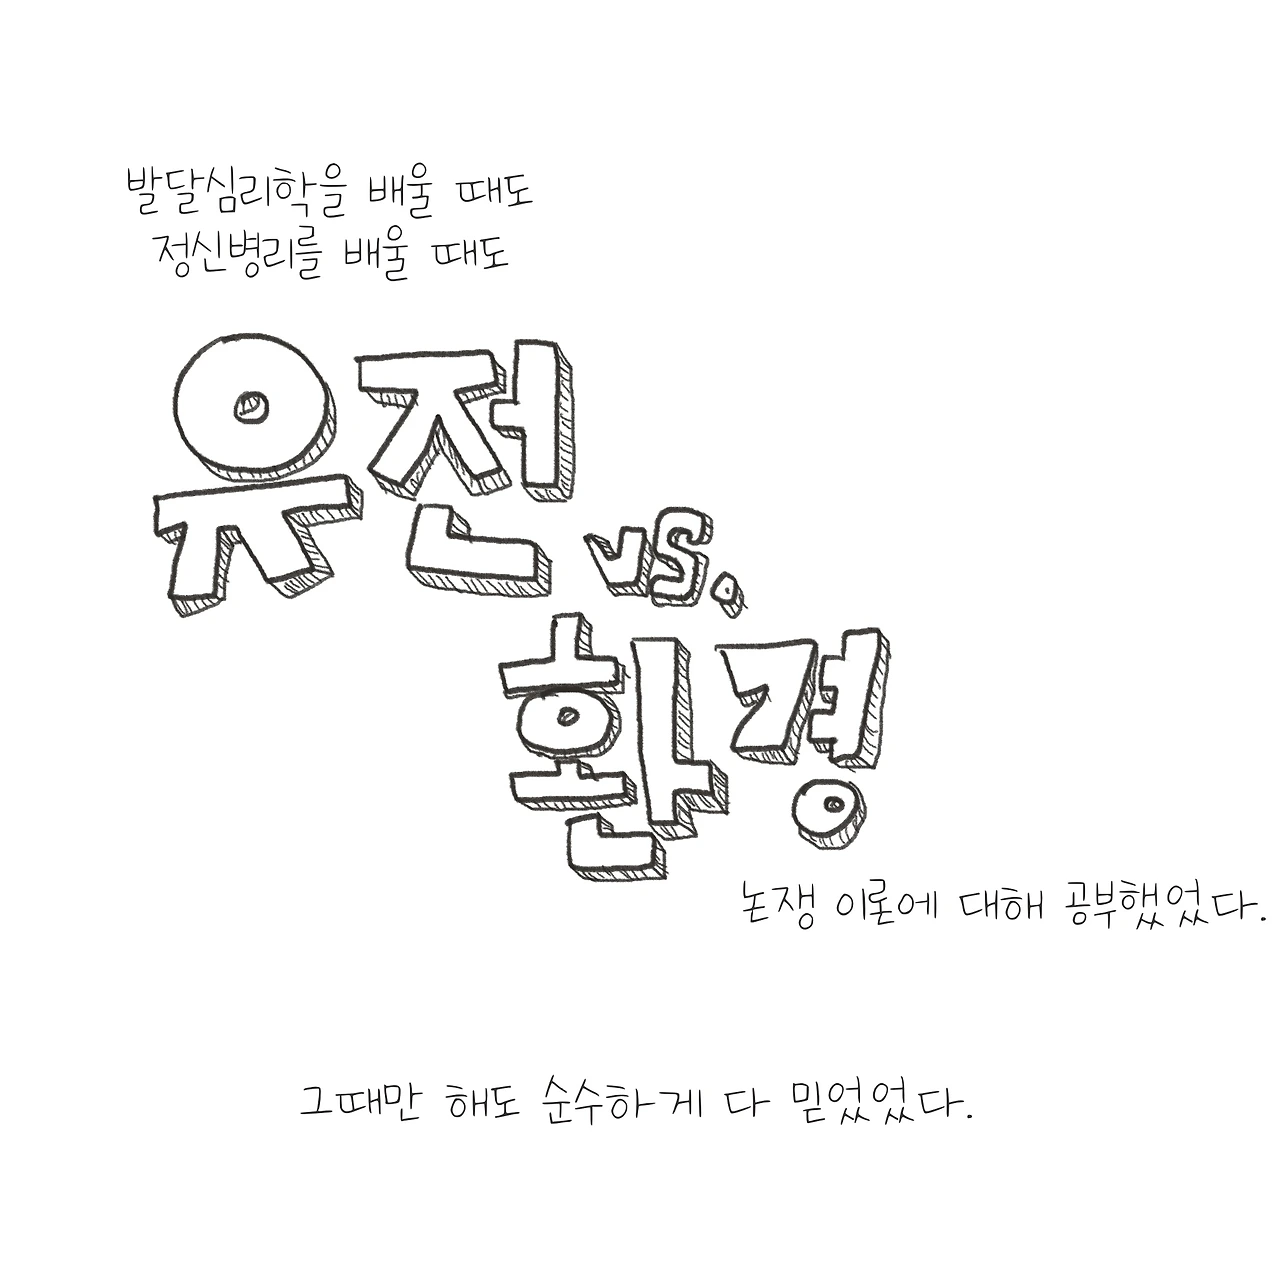 발달심리학을 배울 때도
정신병리를 배울 때도
유전
vs.
환경
논쟁 이론에 대해 공부했었다.
그때만 해도 순수하게 다 믿었었다.